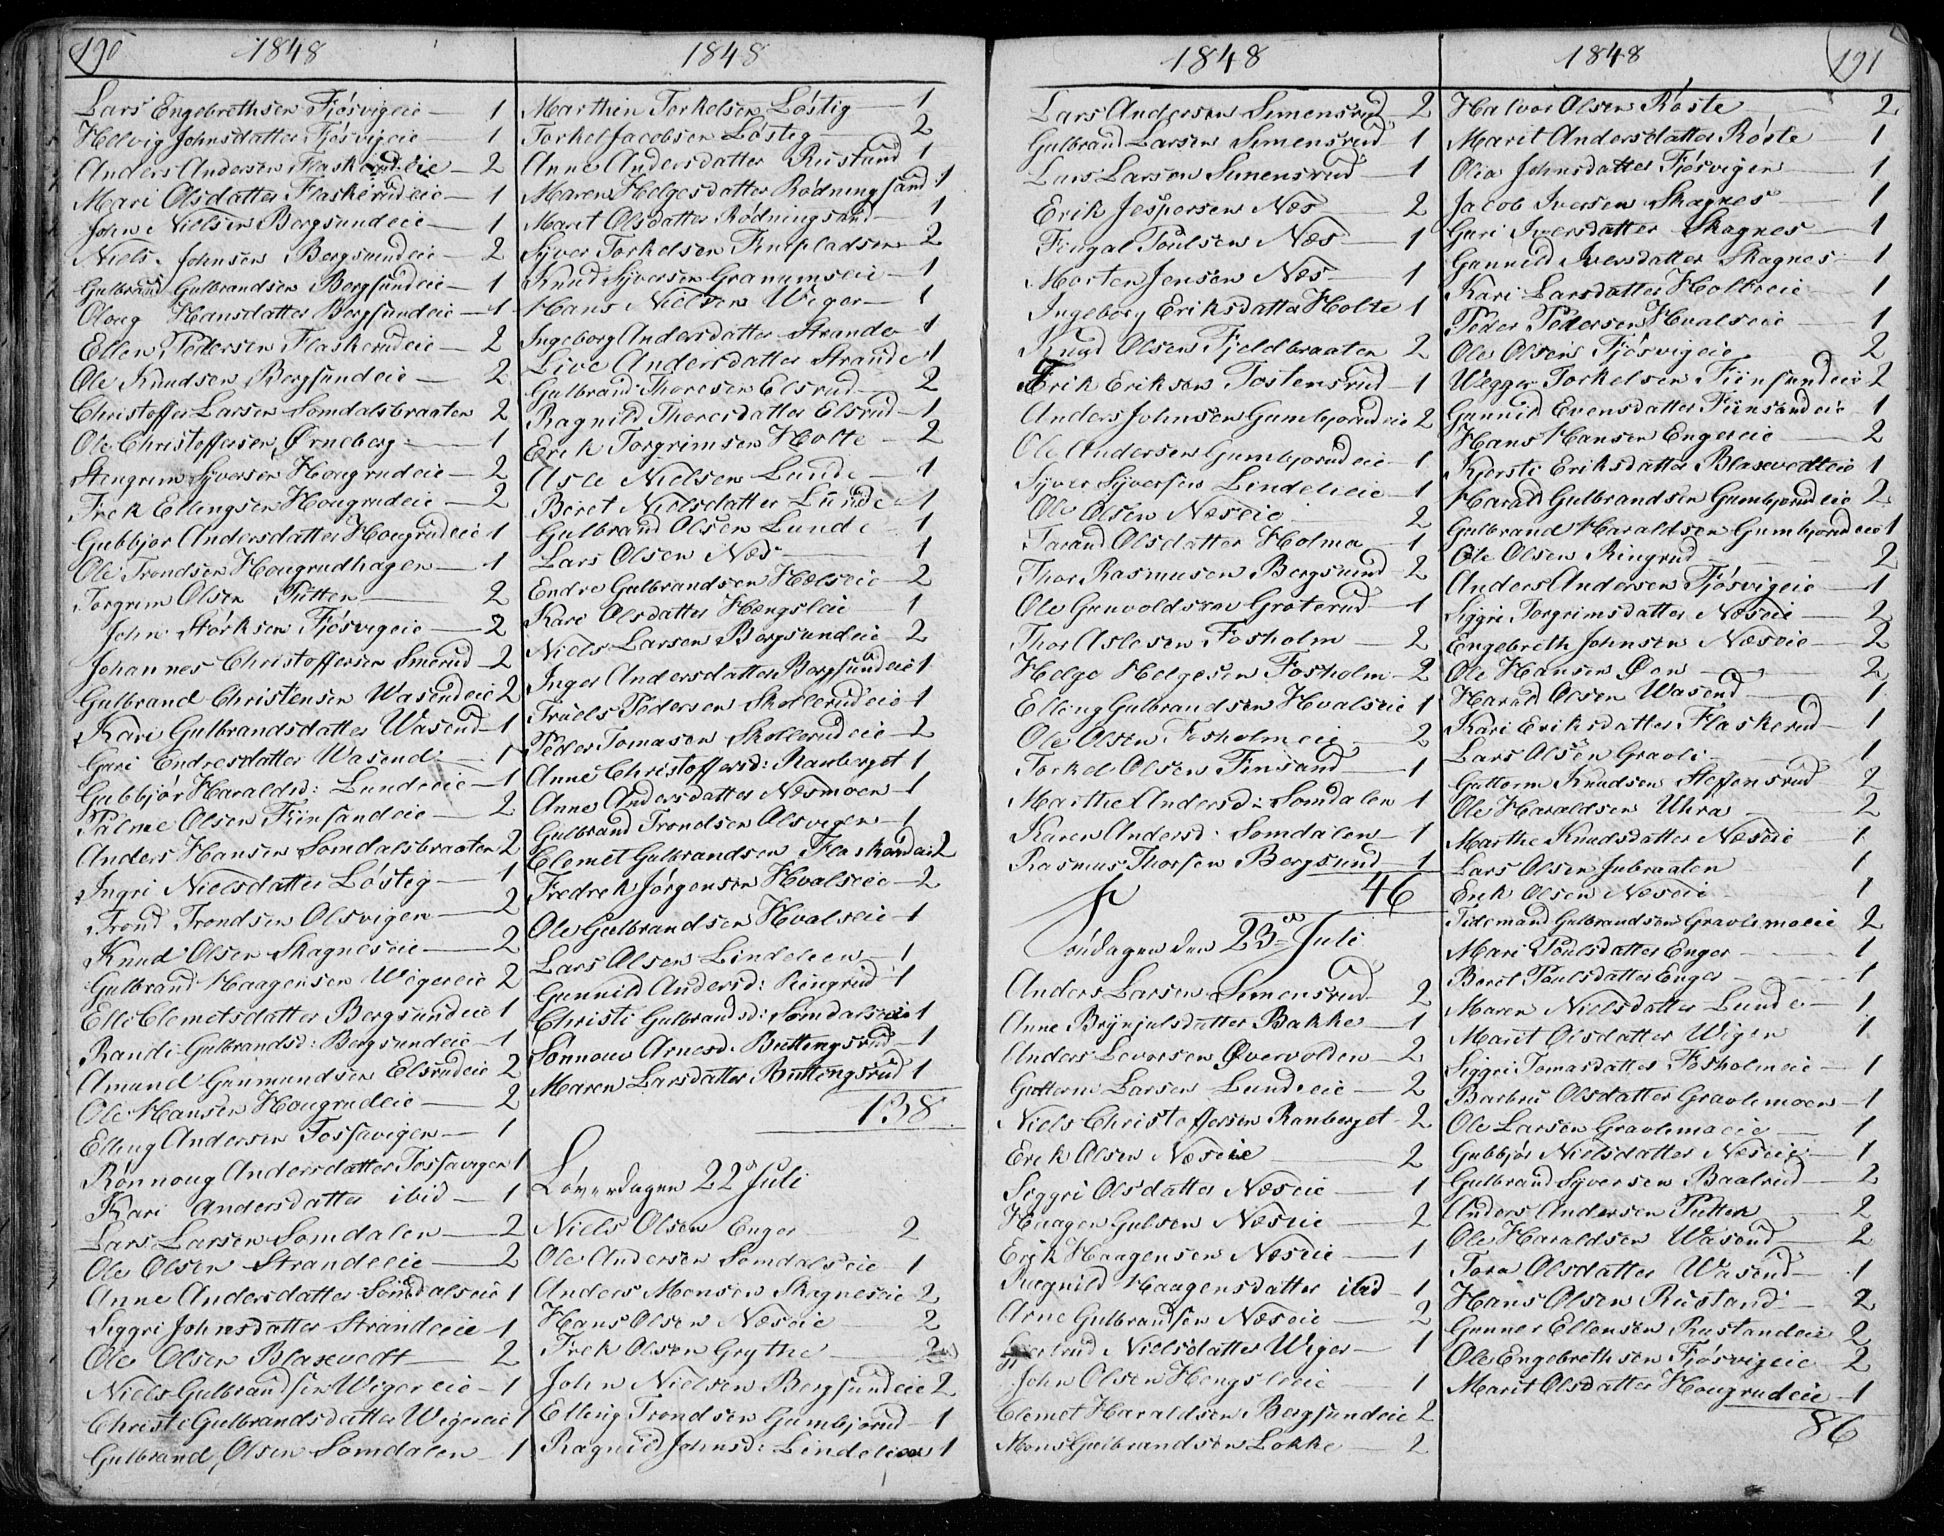 190
1848
Lars Engebrethsen Fjøsvigeie — 1
Helvig Johnsdatter Fjøsvigeie — 1
Anders Andersen Flaskerudeie — 2
Mari Olsdatter Flaskerudeie — 1
John Nielsen Bergsundeie — 1
Niels Johnsen Bergsundeie — 2
Gulbrand Gulbrandsen Bergsundeie — 1
Oloug Hansdatter Bergsundeie — 1
Ellen Pedersen Flaskerudeie — 2
Ole Knudsen Bergsundeie — 2
Christoffer Larsen Somdalsbraaten 2
Ole Christoffersen Ørneberg — 1
Stengrim Syversen Hougrudeie — 2
Frek Ellingsen Hougrudeie — 2
Gubbjør Andersdatter Hougrudeie 1
Ole Trondsen Hougrudhagen — 1
Torgrim Olsen Putten — 2
John Størksen Fjøsvigeie — 2
Johannes Christoffersen Smerud — 2
Gulbrand Christensen Wasendeie 2
Kari Gulbrandsdatter Wasend — 1
Guri Endresdatter Wasend — 1
Gubbjør Haraldsd: Lundeeie — 1
Palme Olsen Fiinsandeie — 2
Anders Hansen Somdalsbraaten 2
Ingri Nielsdatter Løsteg — 1
Trond Trondsen Olsvigen — 2
Knud Olsen Skagneseie — 2
Gulbrand Haagensen Wigereie 2
Elli Clemetsdatter Bergsundeie 1
Randi Gulbrandsd: Bergsundeie — 1
Amund Gunmundsen Elsrudeie 2
Ole Hansen Hougrudeie — 2
Elling Andersen Fossavigen — 1
Rønnoug Andersdatter Fossavigen 1
Kari Andersdatter ibid — 1
Lars Larsen Somdalen — 2
Ole Olsen Strandeeie — 2
Anne Andersdatter Somdalseie 1
Siggri Johnsdatter Strandeeie 1
Ole Olsen Blaxevedt — 2
Niels Gulbrandsen Wigereie — 1
Christi Gulbrandsdatter Wigereie 1
Gulbrand Olsen Somdalen — 1
1848
Marthin Torkelsen Løsteg — 1
Torkel Jacobsen Løsteg — 2
Anne Andersdatter Rustand 1
Maren Helgesdatter Rødningsand 1
Marit Olsdatter Rødningsand 1
Syver Torkelsen Finpladsen 2
Knud Syversen Granumseie — 1
Hans Nielsen Wiger — 1
Ingeborg Andersdatter Strande 1
Live Andersdatter Strande 1
Gulbrand Thoresen Elsrud — 2
Ragnild Thoresdatter Elsrud 1
Erik Torgrimsen Holte — 2
Asle Nielsen Lunde — 1
Beret Nielsdatter Lunde 1
Gulbrand Olsen Lunde 1
Lars Olsen Næs — 1
Endre Gulbrandsen Hælseie — 2
Kari Olsdatter Hængsleie 1
Niels Larsen Bergsundeie — 2
Inger Andersdatter Bergsundeie 1
Truels Pedersen Skollerudeie 1
Peder Tomasen Skollerudeie — 2
Anne Christoffersd: Ranberget 1
Anne Andersdatter Næsmoen 1
Gulbrand Trondsen Olsvigen — 1
Clemet Gulbrandsen Flaskerudeie 2
Fredrek Jørgensen Hvalseie — 2
Ole Gulbrandsen Hvalseie — 1
Lars Olsen Lindelien — 1
Gunnild Andersd: Ringrud — 1
Christi Gulbrandsd: Somdalseie 1
Sønnove Arnesd: Buttingsrud — 1
Maren Larsdatter Buttingsrud 1
138
Løverdagen 22 Juli
Niels Olsen Enger 2
Ole Andersen Somdalseie 1
Anders Monsen Skagneseie 2
Hans Olsen Næseie — 2
Frek Olsen Grythe — 2
John Nielsen Bergsundeie 2
Elling Trondsen Gumbjørud — 1
Ragnild Johnsd: Lindelien 1
1848
Lars Andersen Simensrud 2
Gulbrand Larsen Simensrud 1
Lars Larsen Simensrud — 1
Erik Jespersen Næs — 2
Fingal Poulsen Næs — 1
Morten Jensen Næs — 1
Ingeborg Eriksdatter Holte 1
Knud Olsen Fjeldbraaten 2
Erik Eriksen Tostensrud — 1
Anders Johnsen Gumbjørudeie 2
Ole Andersen Gumbjørudeie — 1
Syver Syversen Lindelieeie — 1
Ole Olsen Næseie 2
Tarand Olsdatter Holma — 1
Thor Rasmusen Bergsund 2
Ole Gunvoldsen Grøterud — 1
Thor Aslesen Fosholm — 2
Helge Helgesen Fosholm — 2
Elling Gulbrandsen Hvalseie 1
Ole Olsen Fosholmeie — 2
Torkel Olsen Finsand — 1
Marthe Andersd: Somdalen 1
Karen Andersd: Somdalen — 1
Rasmus Thorsen Bergsund — 1
46
Søndagen den 23 Juli
Anders Larsen Simensrud 2
Anne Brynjulsdatter Bakke — 1
Anders Levorsen Øvervolden — 2
Guttorm Larsen Lundeeie — 2
Niels Christoffersen Ranberget 2
Erik Olsen Næseie — 2
Siggri Olsdatter Næseie — 1
Haagen Gulsen Næseie 2
Erik Haagensen Næseie — 1
Ragnild Haagensdatter ibid — 1
Arne Gulbrandsen Næseie — 2
Gjertrud Nielsdatter Wiger — 1
John Olsen Hengsleeie — 1
Clemet Haraldsen Bergsundeie 2
Mons Gulbrandsen Løkke — 2
1848
191
Halvor Olsen Røste — 2
Marit Andersdatter Røste 1
Olia Johnsdatter Fjøsvigen — 1
Jacob Iversen Skagnes — 1
Guri Iversdatter Skagnes — 1
Gunnild Iversdatter Skagnes 1
Kari Larsdatter Holteeie — 1
Peder Pedersen Hvalseie — 1
Ole Olsen Fjøsvigeie 2
Wegger Torkelsen Fiinsandeie 2
Gunnild Evensdatter Fiinsandeie 1
Hans Hansen Engereie — 2
Kjersti Eriksdatter Blaxevedteie 1
Harald Gulbrandsen Gumbjørudeie 2
Gulbrand Haraldsen Gumbjørudeie 1
Ole Olsen Ringrud — 2
Anders Andersen Fjøsvigeie — 1
Siggri Torgrimsdatter Næseie — 2
Engebreth Johnsen Næseie — 2
Ole Hansen Øen — 2
Harald Olsen Wasend — 1
Kari Eriksdatter Flaskerud — 1
Lars Olsen Gravli — 1
Guttorm Knudsen Steffensrud 2
Ole Haraldsen Uhra — 2
Marthe Knudsdatter Næseie 1
Lars Olsen Jubraaten 1
Erik Olsen Næseie 1
Tidemand Gulbrandsen Gravlimoeie 2
Mari Poulsdatter Enger — 1
Beret Poulsdatter Enger — 1
Maren Nielsdatter Lunde — 1
Marit Olsdatter Wigen 1
Siggri Tomasdatter Fosholmeie — 1
Barbru Olsdatter Gravlimoen — 1
Ole Larsen Gravlimoeie — 1
Gubbjør Nielsdatter Næseie — 1
Gulbrand Syversen Baalrud — 2
Anders Andersen Putten — 2
Ole Haraldsen Wasend — 2
Tora Olsdatter Wasend — 1
Hans Olsen Rustand — 2
Gunner Ellensen Rustandeie 2
Ole Engebrethsen Fjøsvigeie 2
Marit Olsdatter Hougrudeie — 1
86